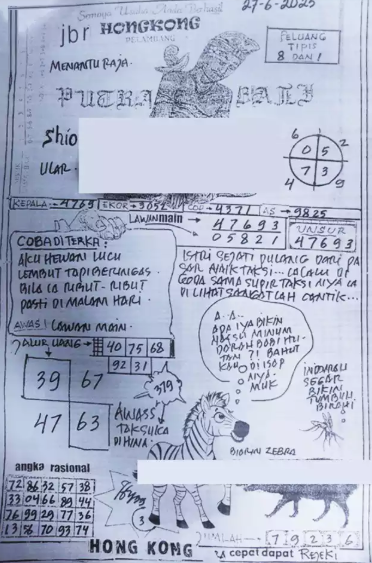 27-6-2025
Semoga Usaha Anda Berhasil
jbr HONGKONG
PELAMBANG
PELUANG
TIPIS
8 DAN 1
MENANTU RAJA.
PUTRA BALI
Shio
ULAR
6 2
0 5
7 3
4 9
KEPALA → 4769 EKOR → 3052 COP → 4371 AS → 9825
LAWAN main
47693
05821
UNSUR
47693
COBA DITERKA:
AKU HEWAN LUCU
LEMBUT TAPI BERINGAS.
BILA CA RIBUT-RIBUT
PASTI DI MALAM HARI.
AWAS! LAWAN MAIN.
ISTRI SEJATI PULANG DARI PA
SAR NAIK TAKSI... LALU DI
GODA SAMA SUPIR TAKSINYA CA
DI LIHAT SANGATLAH CANTIK...
JALUR UANG → 40 75 68
92 31
39 67
47 63
379
A.. A..
ADA IYA BIKIN
NAFSU MINUM
DARAH BABI HU-
TAN ?! BAHUT
KAU DI ISOP
NYA.
MUK
AWASS
TAKSUKA
DIHINA.
INDUVALI
SEGAR
BIKIN
TUMBUH
BIRAHI
BIARIN ZEBRA
angka rasional
72 86 32 57 38
33 04 66 89 44
76 99 29 77 36
13 70 93 74
3
JUMLAH → 7 9 2 3 6
HONG KONG
cepat dapat REJEKI